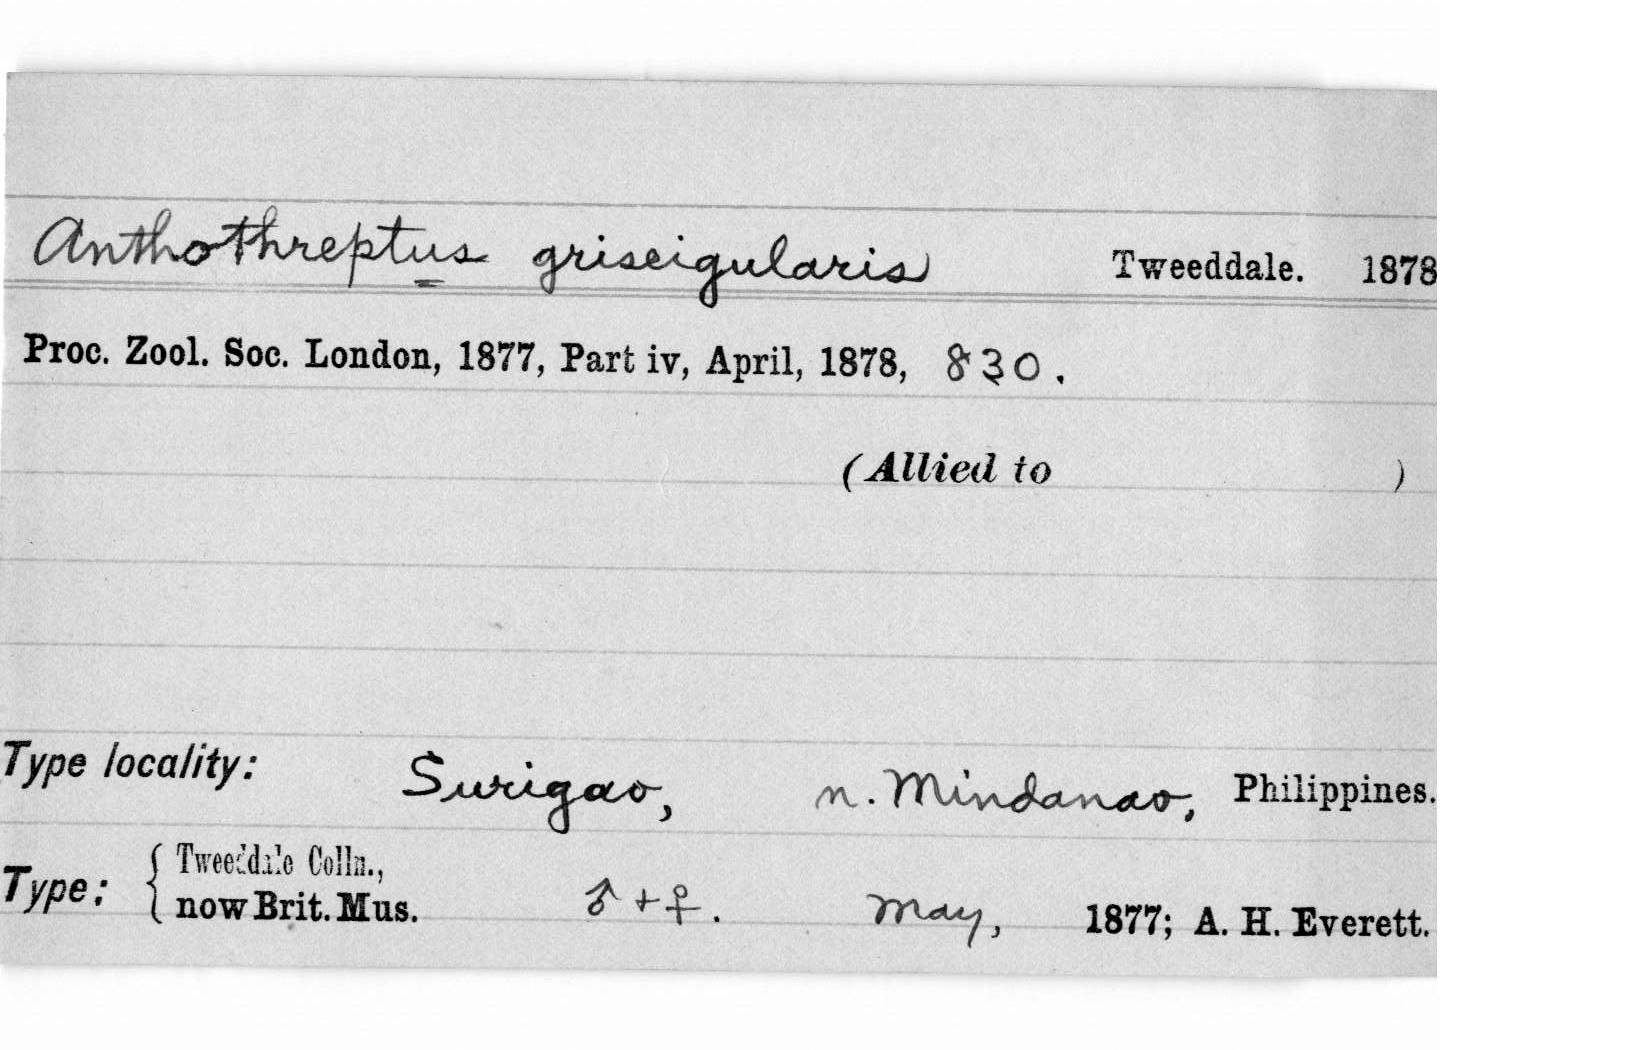 Anthothreptus griseigularis Tweeddale. 1878
Proc. Zool. Soc. London, 1877, Part iv, April, 1878, 830.
(Allied to )
Type locality: Surigao, n. Mindanao, Philippines.
Type: { Tweeddale Colln.,
now Brit. Mus. ♂ + ♀. May, 1877; A. H. Everett.